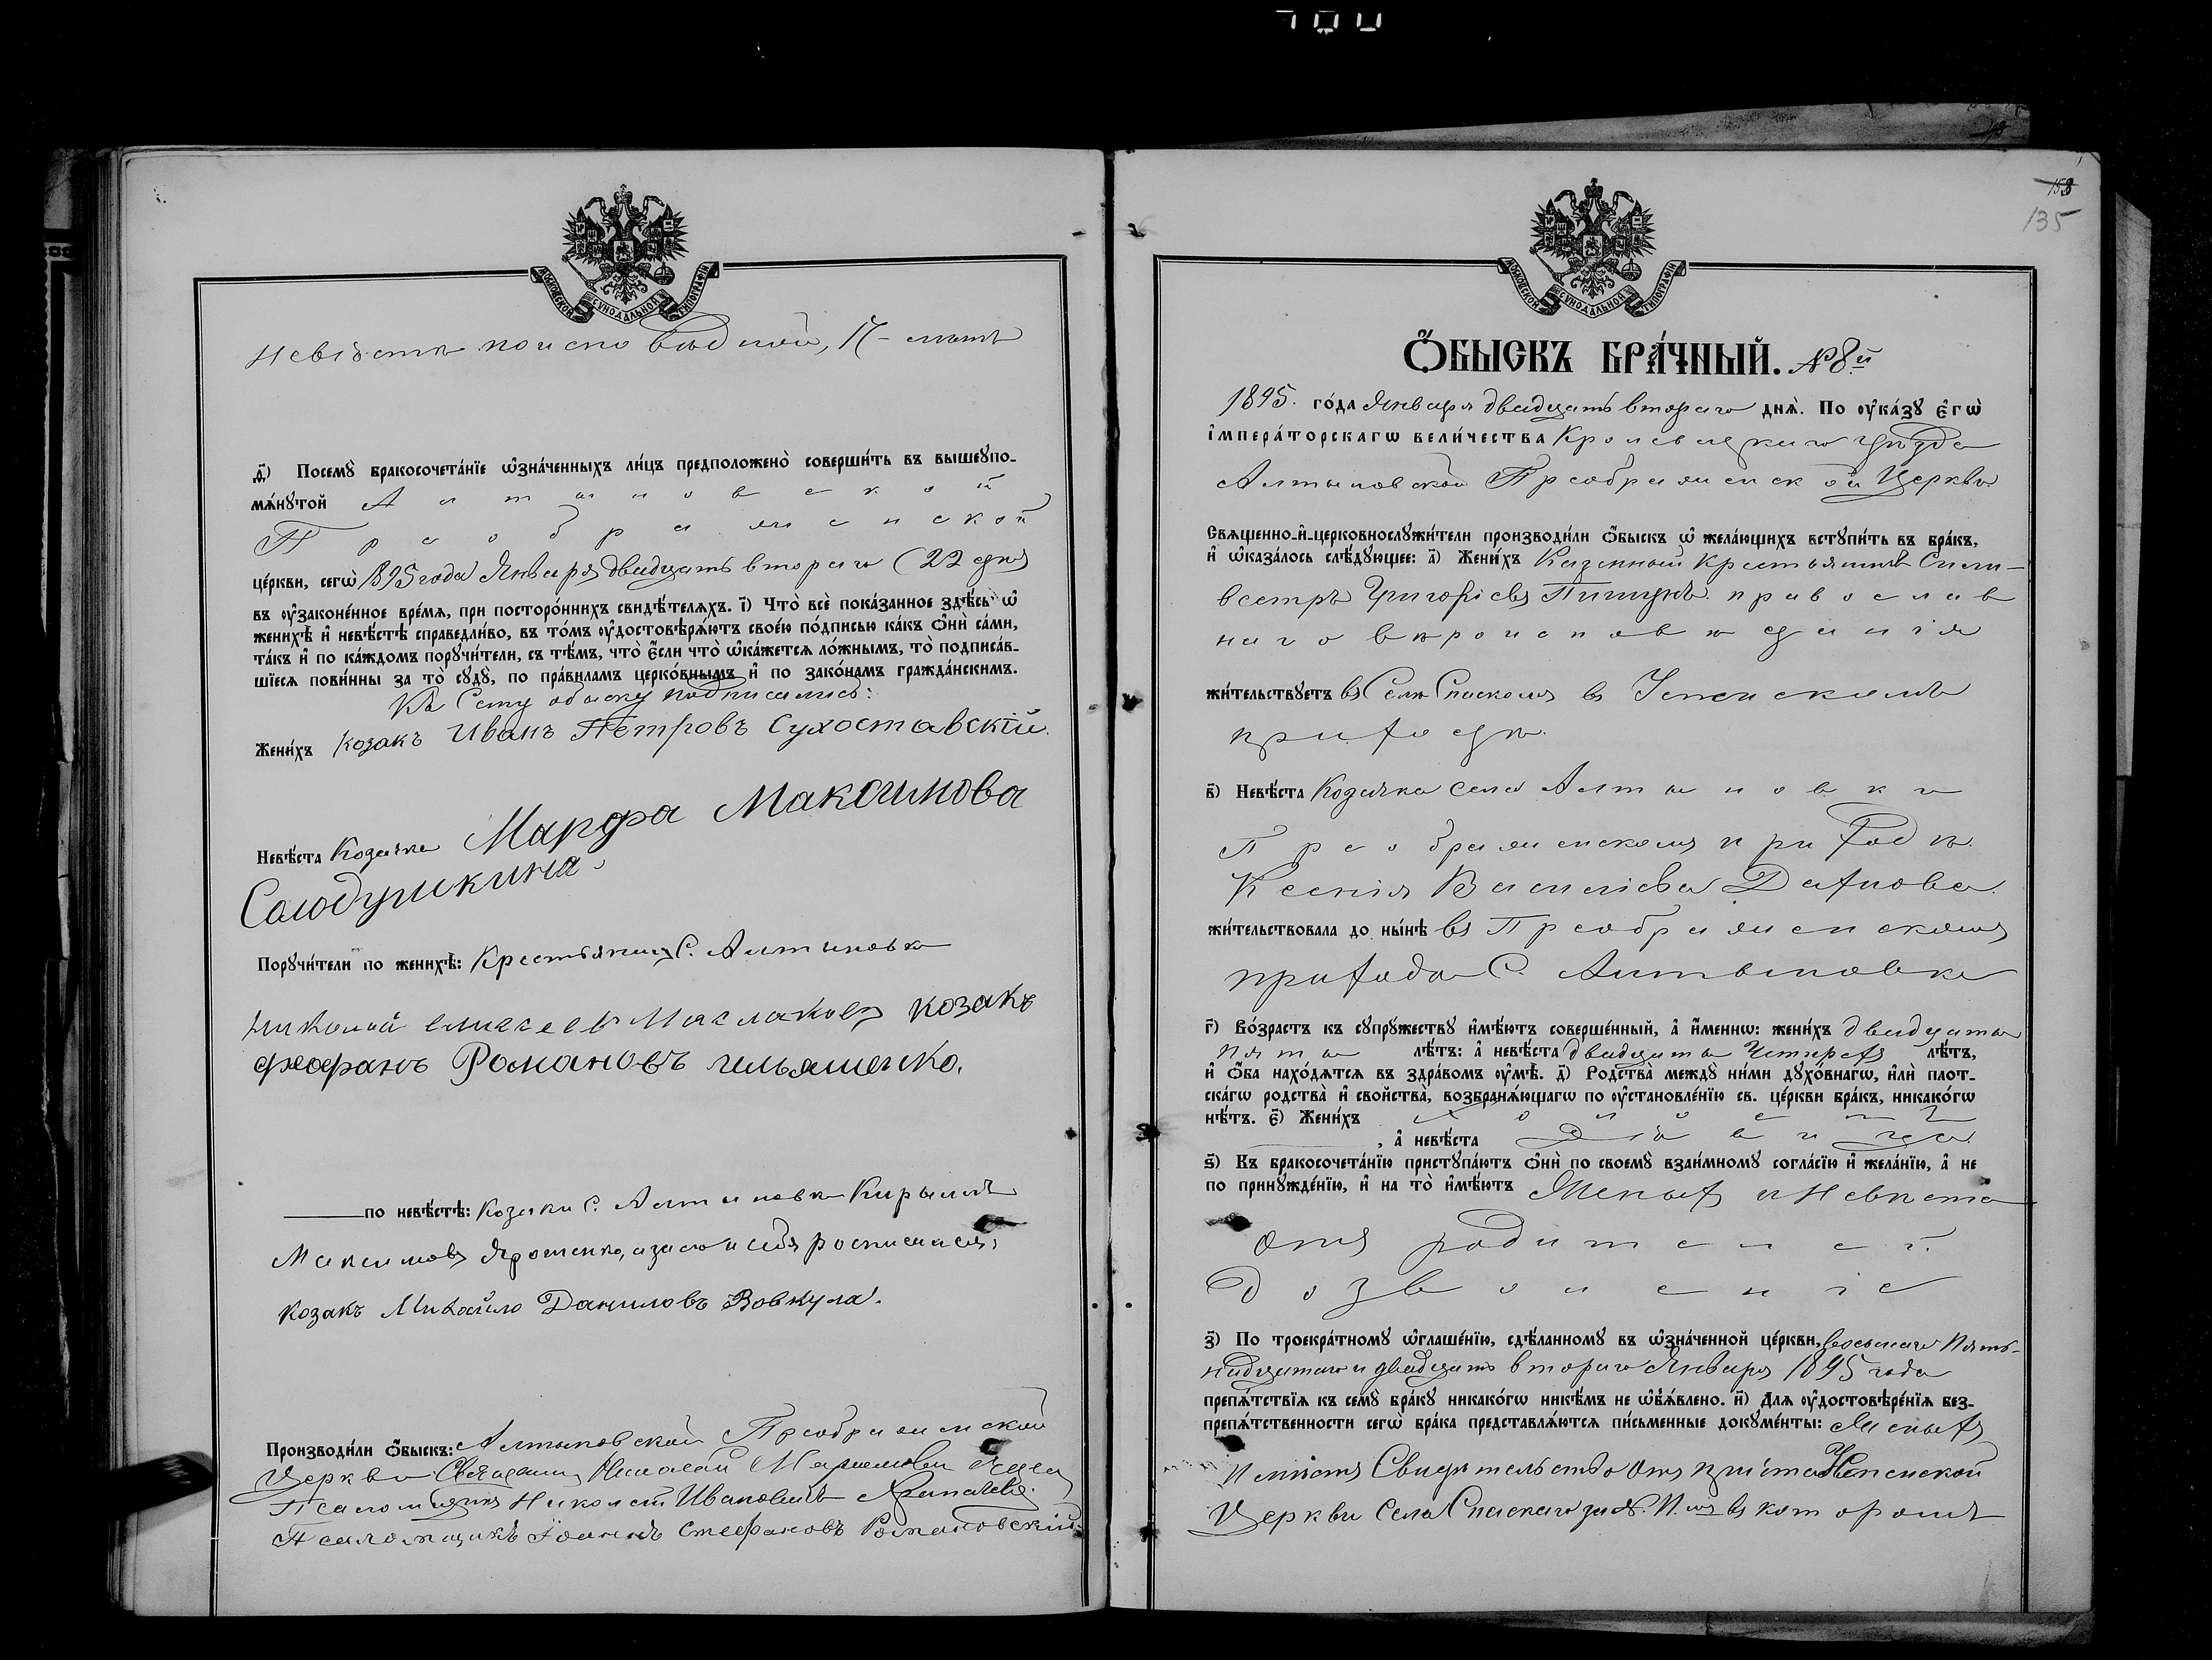 МОСКОВСКОЙ СУНОДАЛЬНОЙ ТИПОГРАФІИ
Невѣста по исповѣдной, 17 - лѣтъ
д҃) Посемꙋ̀ бракосочета́нїе ѡ҆зна́ченныхъ ли́цъ предположено̀ соверши́ть въ вышеꙋпо-
мѧ́нꙋтой Алтыновской
Преображенской
це́ркви, сегѡ̀ 1895 года Января двадцать втораго (22 дня
въ ᲂу҆законе́нное вре́мѧ, при посторо́ннихъ свидѣ́телѧхъ. і҃) Что̀ всѐ пока́занное здѣ́сь ѡ҆
женихѣ̀ и҆ невѣ́стѣ справедли́во, въ то́мъ ᲂу҆достовѣрѧ́ютъ свое́ю по́дписью ка́къ ѻ҆нѝ са́ми,
та́къ и҆ по ка́ждомъ порꙋчи́тели, съ тѣ́мъ, что̀ є҆́сли что̀ ѡ҆ка́жетсѧ ло́жнымъ, то̀ подписа́в-
шїесѧ пови́нны за то̀ сꙋдꙋ̀, по пра́виламъ церко́внымъ и҆ по зако́намъ гражда́нскимъ.
Къ Сему обыску подписались:
Жени́хъ козакъ Иванъ Петровъ Сухоставскій
Невѣ́ста Козачка Марфа Максимова
Солодушкина
Порꙋчи́тели по женихѣ̀: Крестьянинъ С. Алтыновки
Николай Маслаковъ козакъ
Феофанъ Романовъ ильяшенко.
по невѣ́стѣ: Козаки С. Алтыновки Кирыллъ
Максимовъ Ярошенко, а за него и себя росписался,
козакъ Михайло Даниловъ Вовкула.
Производи́ли ѻ҆́быскъ: Алтыновской Преображенской
Церкви Священникъ Николай
Псаломщикъ Николай Ивановичъ
Псаломщикъ Іоаннъ Стефановъ Романовскій
135
МОСКОВСКОЙ СУНОДАЛЬНОЙ ТИПОГРАФІИ
Ѻ҆́БЫСКЪ БРА́ЧНЫЙ. № 8й
1895. го́да Января двадцать втораго днѧ̀. По ᲂу҆ка́зꙋ є҆гѡ̀
і҆мпера́торскагѡ вели́чества Кролевецкаго уѣзда
Алтыновской Преображенской Церкви
Свѧще́нно-и҆-церковнослꙋжи́тели производи́ли ѻ҆́быскъ ѡ҆ жела́ющихъ встꙋпи́ть въ бра́къ,
и҆ ѡ҆каза́лось слѣ́дꙋющее: а҃) Жени́хъ Казенный Крестьянинъ Сили-
вестръ Григоріевъ Пищукъ православ
наго вѣроисповѣданія
жи́тельствꙋетъ въ Селѣ Спаскомъ въ Успенскомъ
приходѣ.
в҃) Невѣ́ста Козачка села Алтыновки
Преображенскомъ приходѣ.
Ксенія Василіева Дахнова.
жи́тельствовала до ны́нѣ въ Преображенскомъ
прихода С. Алтыновки
г҃) Во́зрастъ къ сꙋпрꙋ́жествꙋ и҆мѣ́ютъ соверше́нный, а҆ и҆́меннѡ: жени́хъ двадцати
пяти лѣ́тъ: а҆ невѣ́ста двадцати Четирехъ лѣ́тъ,
и҆ ѻ҆́ба нахо́дѧтсѧ въ здра́вомъ ᲂу҆мѣ̀. д҃) Родства̀ междꙋ̀ ни́ми дꙋхо́внагѡ, и҆лѝ плот-
ска́гѡ родства̀ и҆ свойства̀, возбранѧ́ющагѡ по ᲂу҆становле́нїю св. це́ркви бра́къ, никако́гѡ
нѣ́тъ. є҃) Жени́хъ холостъ
, а҆ невѣ́ста Дѣвица
ѕ҃) Къ бракосочета́нїю пристꙋпа́ютъ ѻ҆нѝ по своемꙋ̀ взаи́мномꙋ согла́сїю и҆ жела́нїю, а҆ не
по принꙋжде́нїю, и҆ на то̀ и҆мѣ́ютъ Женихъ и Невѣста
отъ родителей
дозволеніе
з҃) По троекра́тномꙋ ѡ҆глаше́нїю, сдѣ́ланномꙋ въ ѡ҆зна́ченной це́ркви, восьмаго Пять-
надцатаго и двадцать втораго Января 1895 года
препѧ́тствїѧ къ семꙋ̀ бра́кꙋ никако́гѡ никѣ́мъ не ѡ҆б̾ѧ́влено. и҃) Длѧ ᲂу҆достовѣре́нїѧ без-
препѧ́тственности сегѡ̀ бра́ка представлѧ́ютсѧ пи́сьменные докꙋме́нты: Женихъ
Имѣетъ Свидѣтельство отъ причта Успенской
Церкви Села Спаскаго за №. 11.мъ въ которомъ